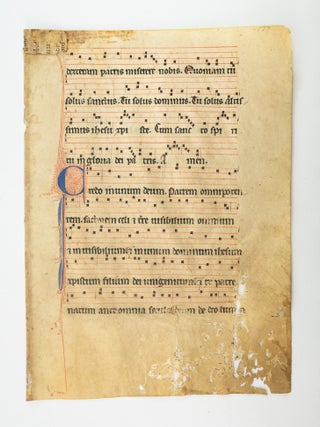 dexteram patris miserere nobis. Quoniam tu
solus sanctus. Tu solus dominus. Tu solus altis
simus ihesu xpi ste. Cum sanc to spi ri
tu in gloria dei pa tris. A men.
Credo in unum deum. Patrem omnipoten
tem. factorem celi et terre visibilium omnium
et invisibilium et in unum dominum ihesum
xpistum filium dei unigenitum et ex patre
natum ante omnia secula deum de deo lumen